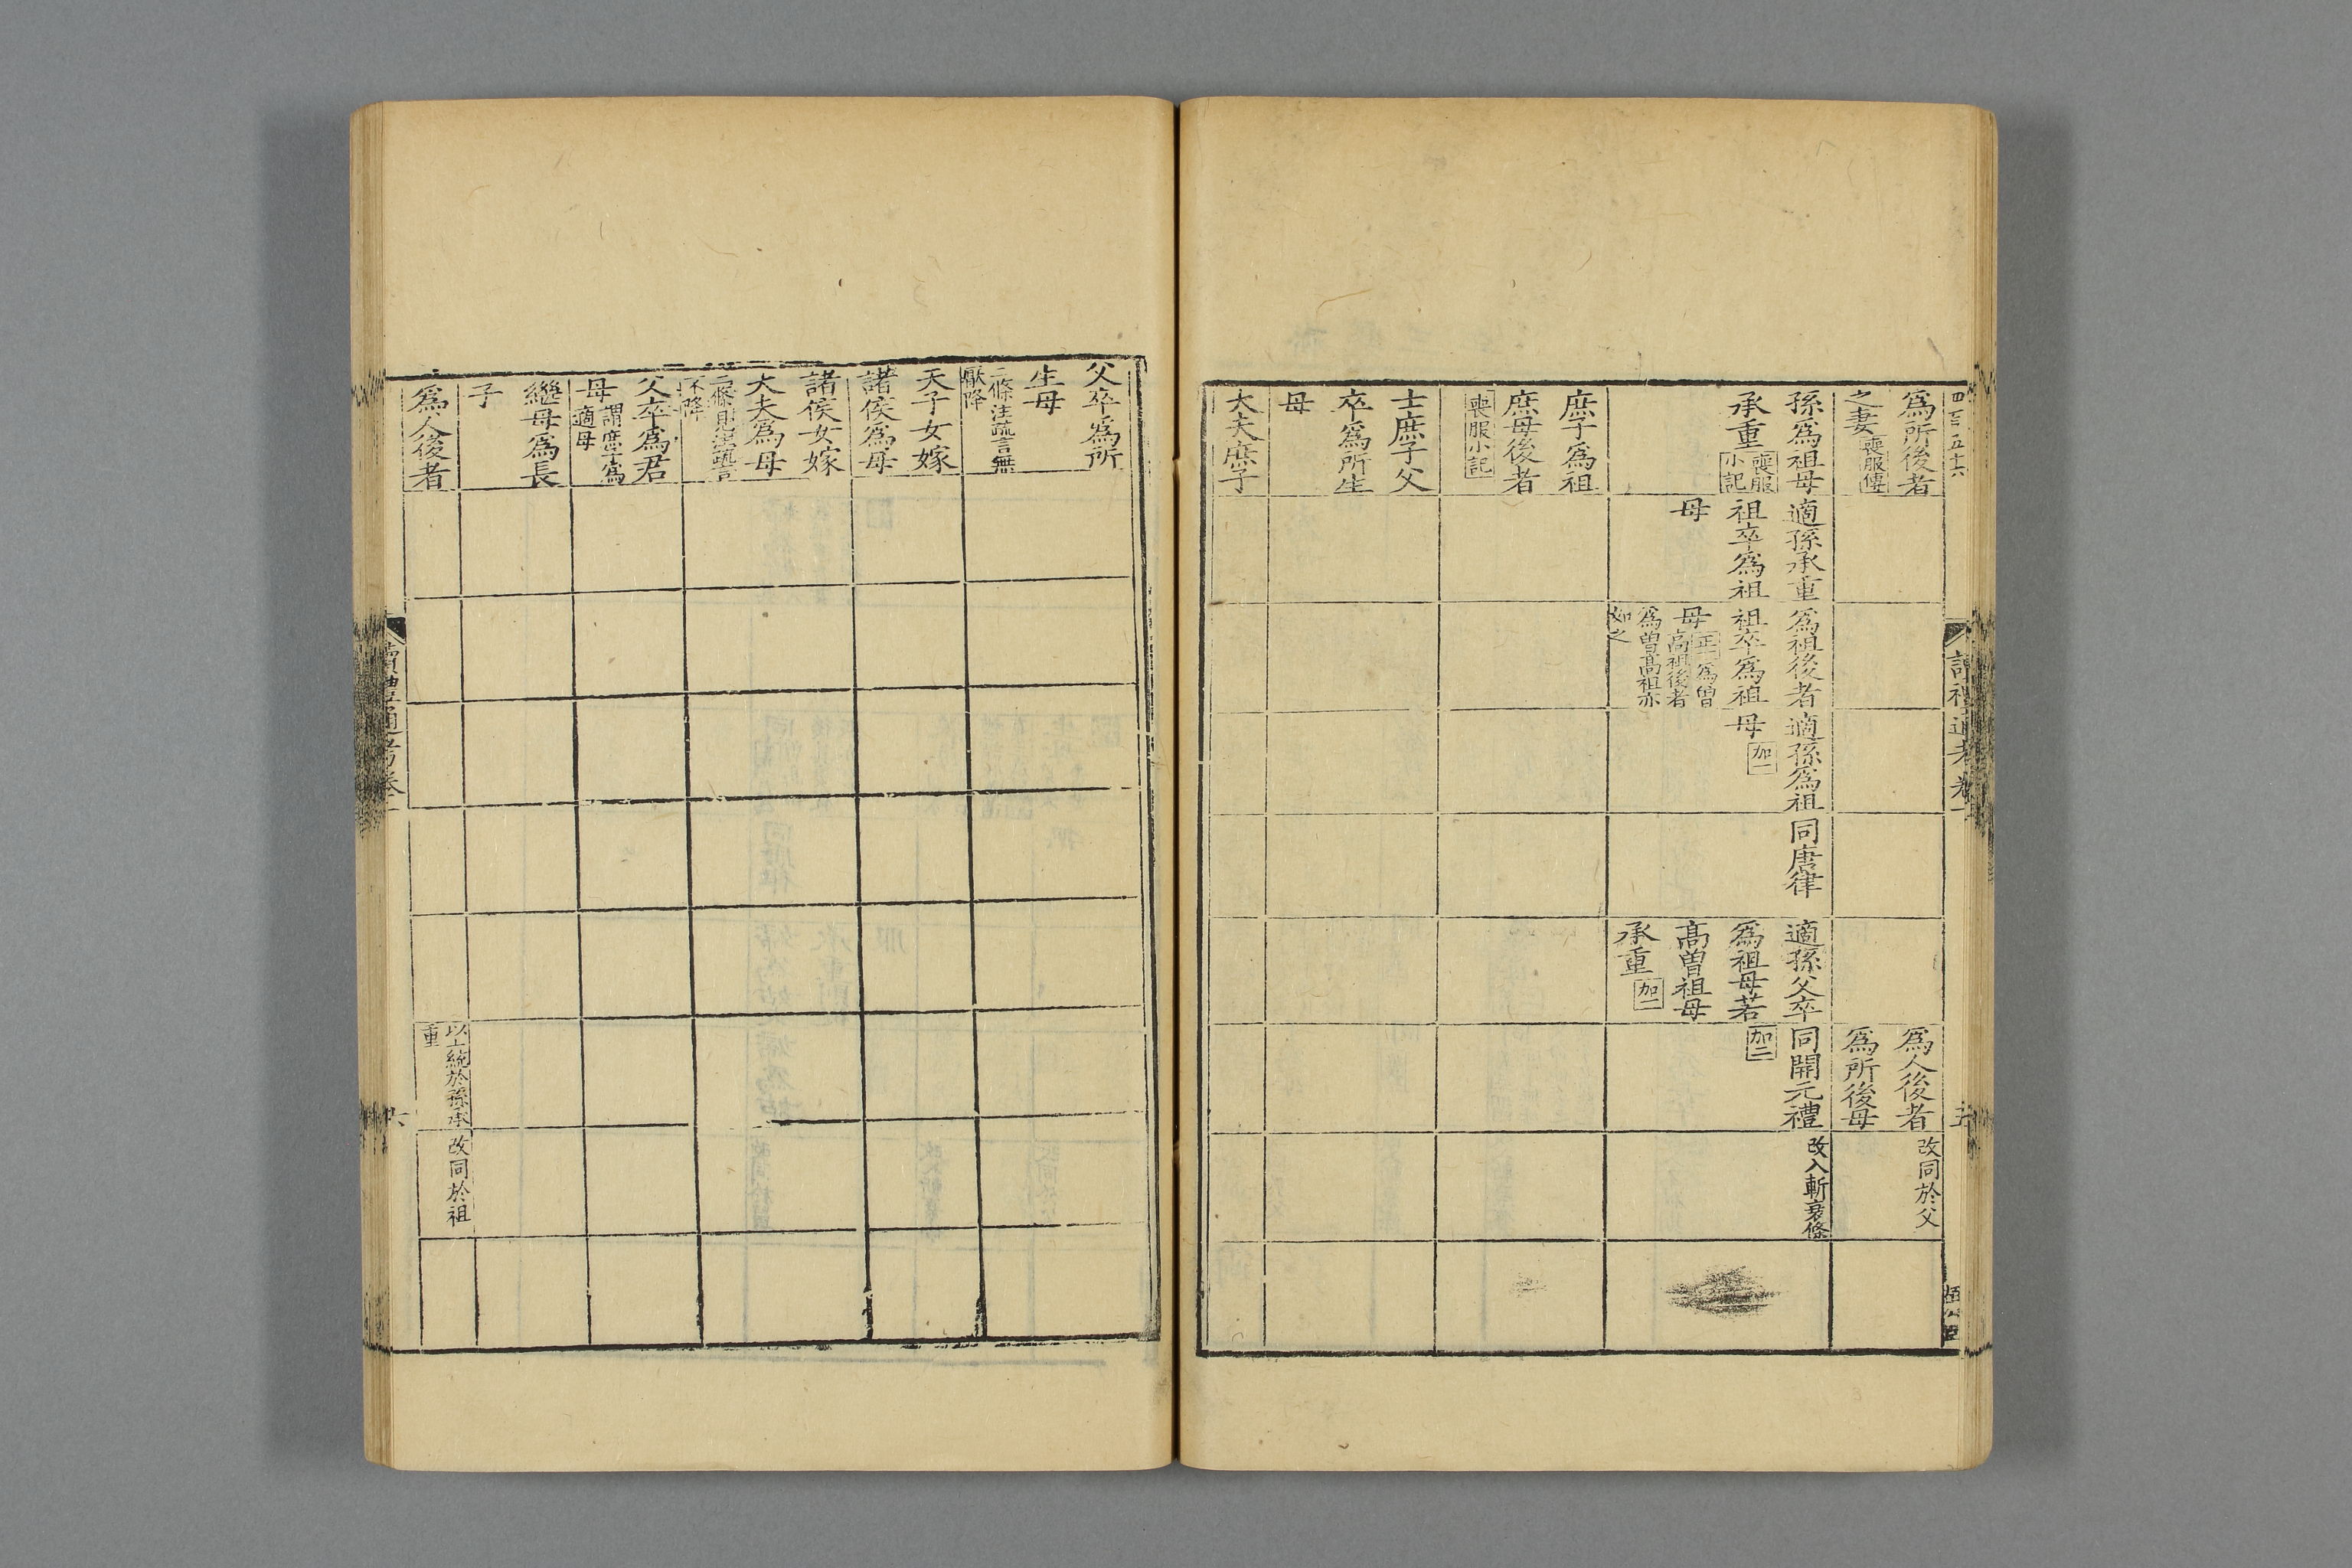 四百五十六
讀禮通考卷一
五
爲所後者
之妻喪服傳
爲人後者
爲所後母
改同於父
孫爲祖母
承重喪服
小記
適孫承重
祖卒爲祖
母
爲祖後者
祖卒爲祖
母正爲曾
高祖後者
爲曾高祖亦
如之
適孫爲祖
母加一
同唐律
適孫父卒
爲祖母若
高曾祖母
承重加二
同開元禮
加二
改入斬衰條
庶子爲祖
庶母後者
喪服小記
士庶子父
卒爲所生
母
大夫庶子
父卒爲所
生母
二條注疏言無
厭降
天子女嫁
諸侯爲母
諸侯女嫁
大夫爲母
二條見注疏言
不降
父卒爲君
母謂庶子爲
適母
繼母爲長
子
爲人後者
以上統於孫承
重
改同於祖
讀禮通考卷一
六